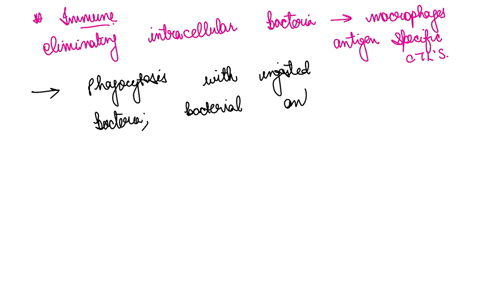 ** Immune
eliminating intracellular bacteria → macrophages
antigen specific
CTL'S.
→ Phagocytosis with ingested
bacteria; bacterial an